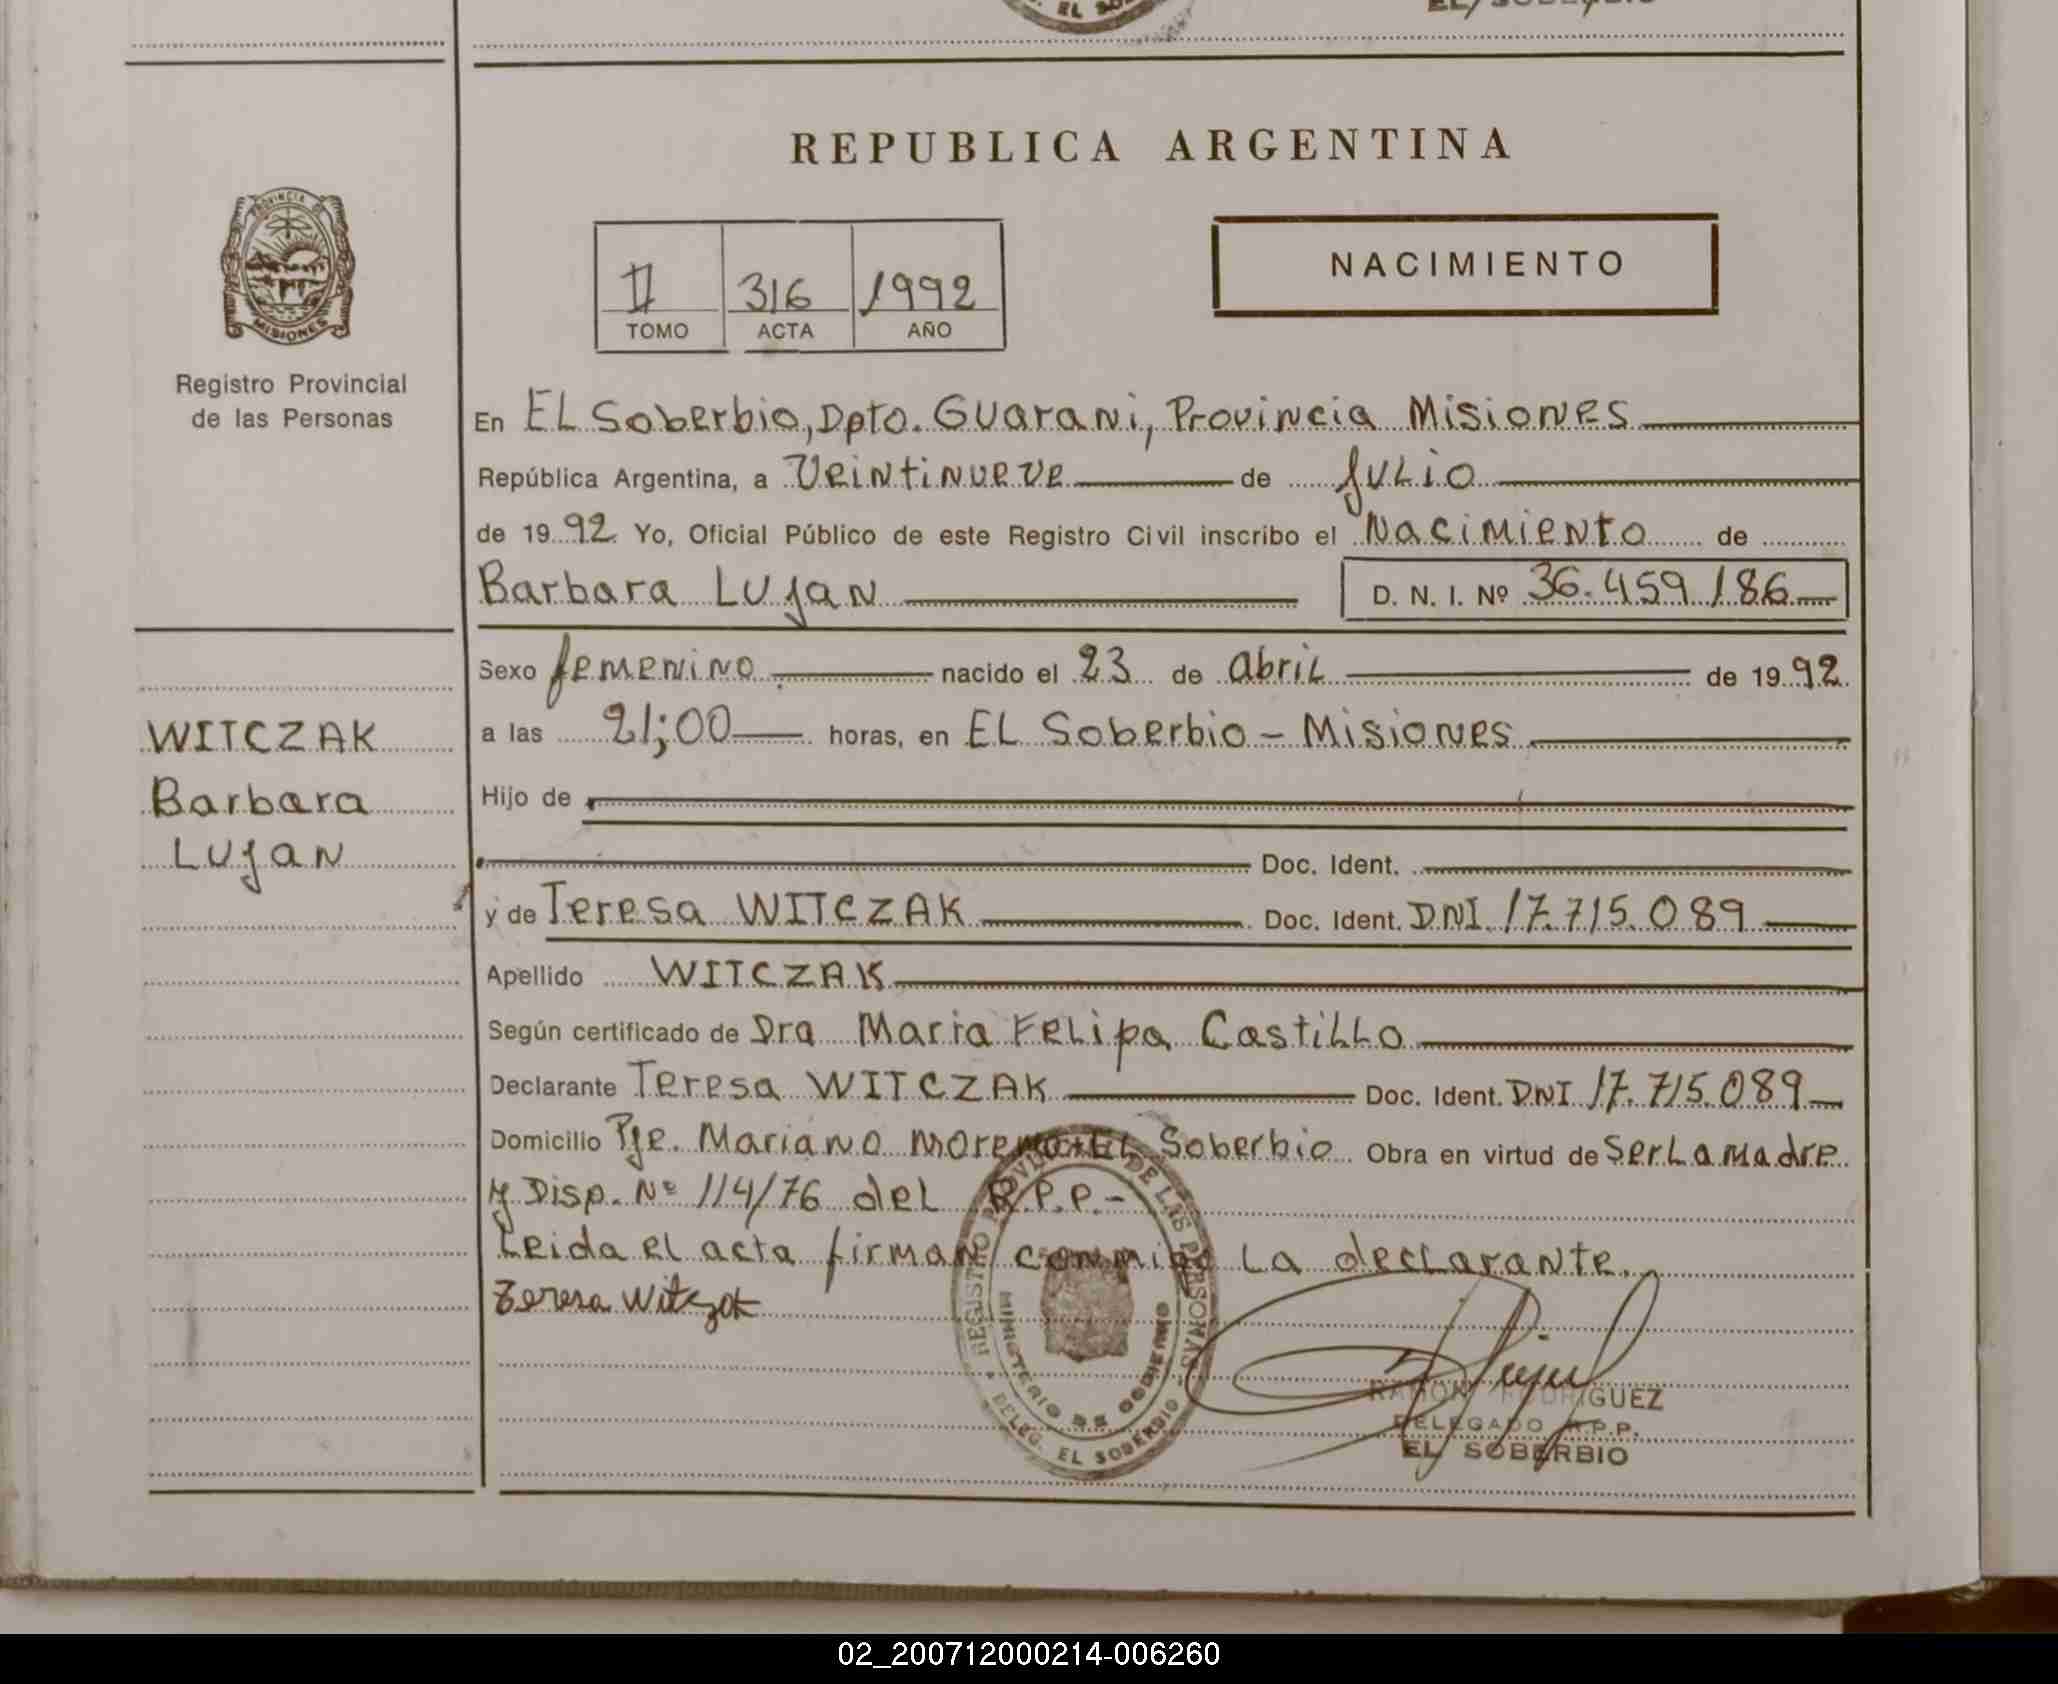 EL SOBERBIO
REPUBLICA ARGENTINA
PROVINCIA DE
MISIONES
Registro Provincial
de las Personas
II 316 1992
TOMO ACTA AÑO
NACIMIENTO
En EL Soberbio, Dpto. Guarani, Provincia Misiones
República Argentina, a Veintinueve de Julio
de 1992 Yo, Oficial Público de este Registro Civil inscribo el Nacimiento de
Barbara Lujan D. N. I. Nº 36.459.186
Sexo femenino nacido el 23 de abril de 1992
a las 21;00 horas, en EL Soberbio - Misiones
WITCZAK
Barbara
Lujan
Hijo de
Doc. Ident.
y de Teresa WITCZAK Doc. Ident. DNI 17.715.089
Apellido WITCZAK
Según certificado de Dra Maria Felipa Castillo
Declarante Teresa WITCZAK Doc. Ident. DNI 17.715.089
Domicilio Pje. Mariano Moreno-EL Soberbio Obra en virtud de Ser La Madre
y Disp. Nº 114/76 del R.P.P.-
Leida el acta firman conmigo La declarante.
Teresa Witczak
REGISTRO PROVINCIAL DE LAS PERSONAS
MINISTERIO DE GOBIERNO
DELEG. EL SOBERBIO
RAMON RODRIGUEZ
DELEGADO R.P.P.
EL SOBERBIO
02_200712000214-006260